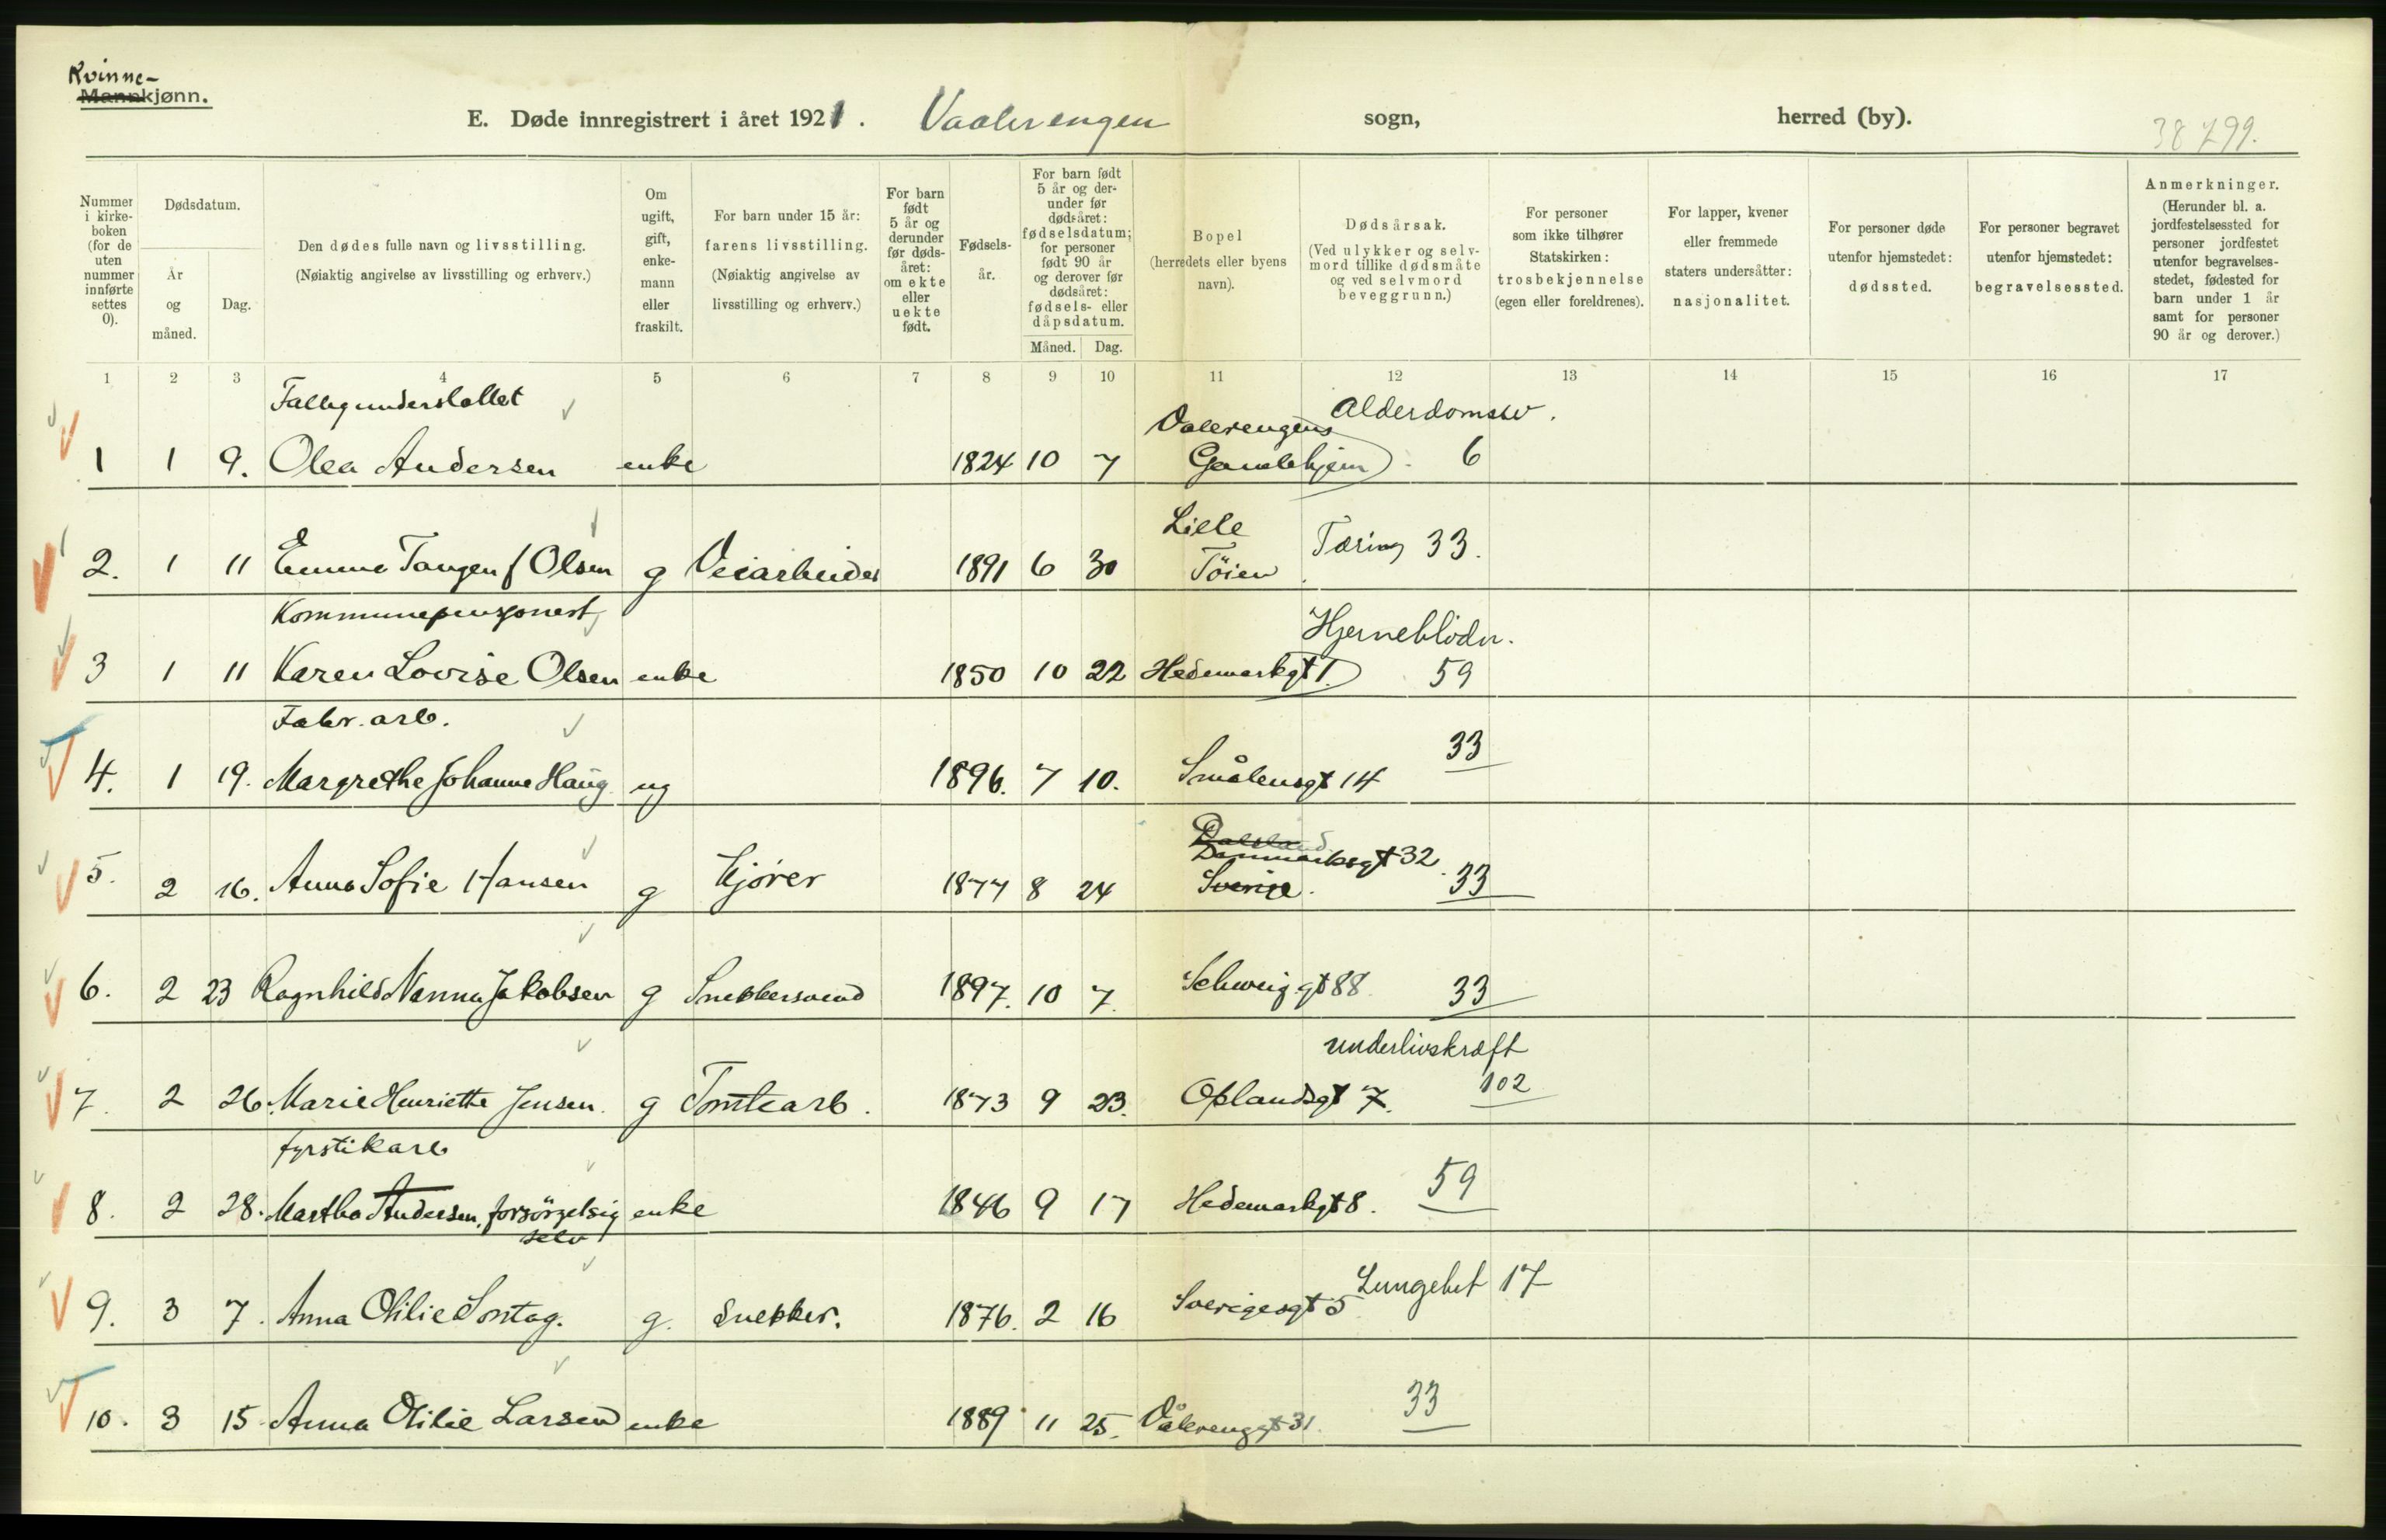 Kvinne-
Mannkjønn.
E. Døde innregistrert i året 1921. Vaalerengen sogn, herred (by).
38799.
Nummer i kirke-boken (for de uten nummer innførte settes 0).
Dødsdatum.
År og måned.
Dag.
Den dødes fulle navn og livsstilling.
(Nøiaktig angivelse av livsstilling og erhverv.)
Om ugift, gift, enke-mann eller fraskilt.
For barn under 15 år:
farens livsstilling.
(Nøiaktig angivelse av livsstilling og erhverv.)
For barn født 5 år og derunder før døds-året: om ekte eller uekte født.
Fødsels-år.
For barn født 5 år og der-under før dødsåret: fødselsdatum; for personer født 90 år og derover før dødsåret: fødsels- eller dåpsdatum.
Måned. Dag.
Bopel
(herredets eller byens navn).
Dødsårsak.
(Ved ulykker og selv-mord tillike dødsmåte og ved selvmord beveggrunn.)
For personer som ikke tilhører Statskirken: trosbekjennelse (egen eller foreldrenes).
For lapper, kvener eller fremmede staters undersåtter: nasjonalitet.
For personer døde utenfor hjemstedet: dødssted.
For personer begravet utenfor hjemstedet: begravelsessted.
Anmerkninger.
(Herunder bl. a. jordfestelsessted for personer jordfestet utenfor begravelses-stedet, fødested for barn under 1 år samt for personer 90 år og derover.)
1 2 3 4 5 6 7 8 9 10 11 12 13 14 15 16 17
Fattigunderstøttet Vaalerengens Alderdomssv.
1 1 9. Olea Andersen enke 1824 10 7 Gamlehjem 6
Lille
2. 1 11 Emma Tangen f Olsen g Veiarbeider 1891 6 30 Töien Tæring 33.
Kommunepensjonert Hjerneblödn.
3 1 11 Karen Lovise Olsen enke 1850 10 22 Hedemarkgt 1 59
Fabr. arb.
4. 1 19. Margrethe Johanne Haug ug 1896. 7 10. Smålensgt 14 33
Dalsland
Danmarksgt 32.
5. 2 16. Anna Sofie Hansen g Kjører 1877 8 24 Sverige. 33
6. 2 23 Ragnhild Nanna Jakobsen g Snekkersvend 1897. 10 7. Schweigg.gt 88 33
underlivskræft
7. 2 26. Marie Henriette Jensen. g Tomtearb. 1873 9 23. Oplandsgt 7. 102
fyrstikarb
8. 2 28. Martha Andersen, forsörgelsig enke 1846 9 17 Hedemarkgt 8. 59
selv
9. 3 7. Anna Otilie Sontag. g. Snekker. 1876. 2 16 Sverigesgt 5 Lungebet 17
10. 3 15 Anna Otilie Larsen enke 1889 11 25. Vålerenggt 31. 33